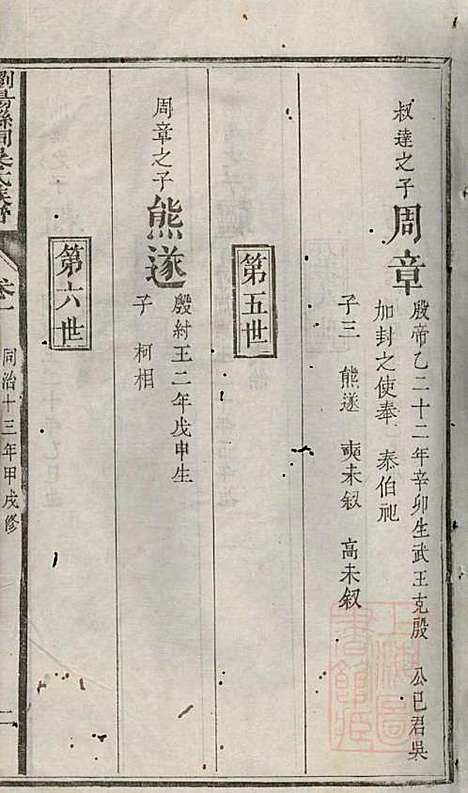 叔達之子 周章 殷帝乙二十二年辛卯生武王克殷 公已君吳
加封之使奉 泰伯祀
子三 熊遂 奭未叙 高未叙
第五世
周章之子 熊遂 殷紂王二年戊申生
子 柯相
第六世
卷一 同治十三年甲戌修
上海圖書館藏